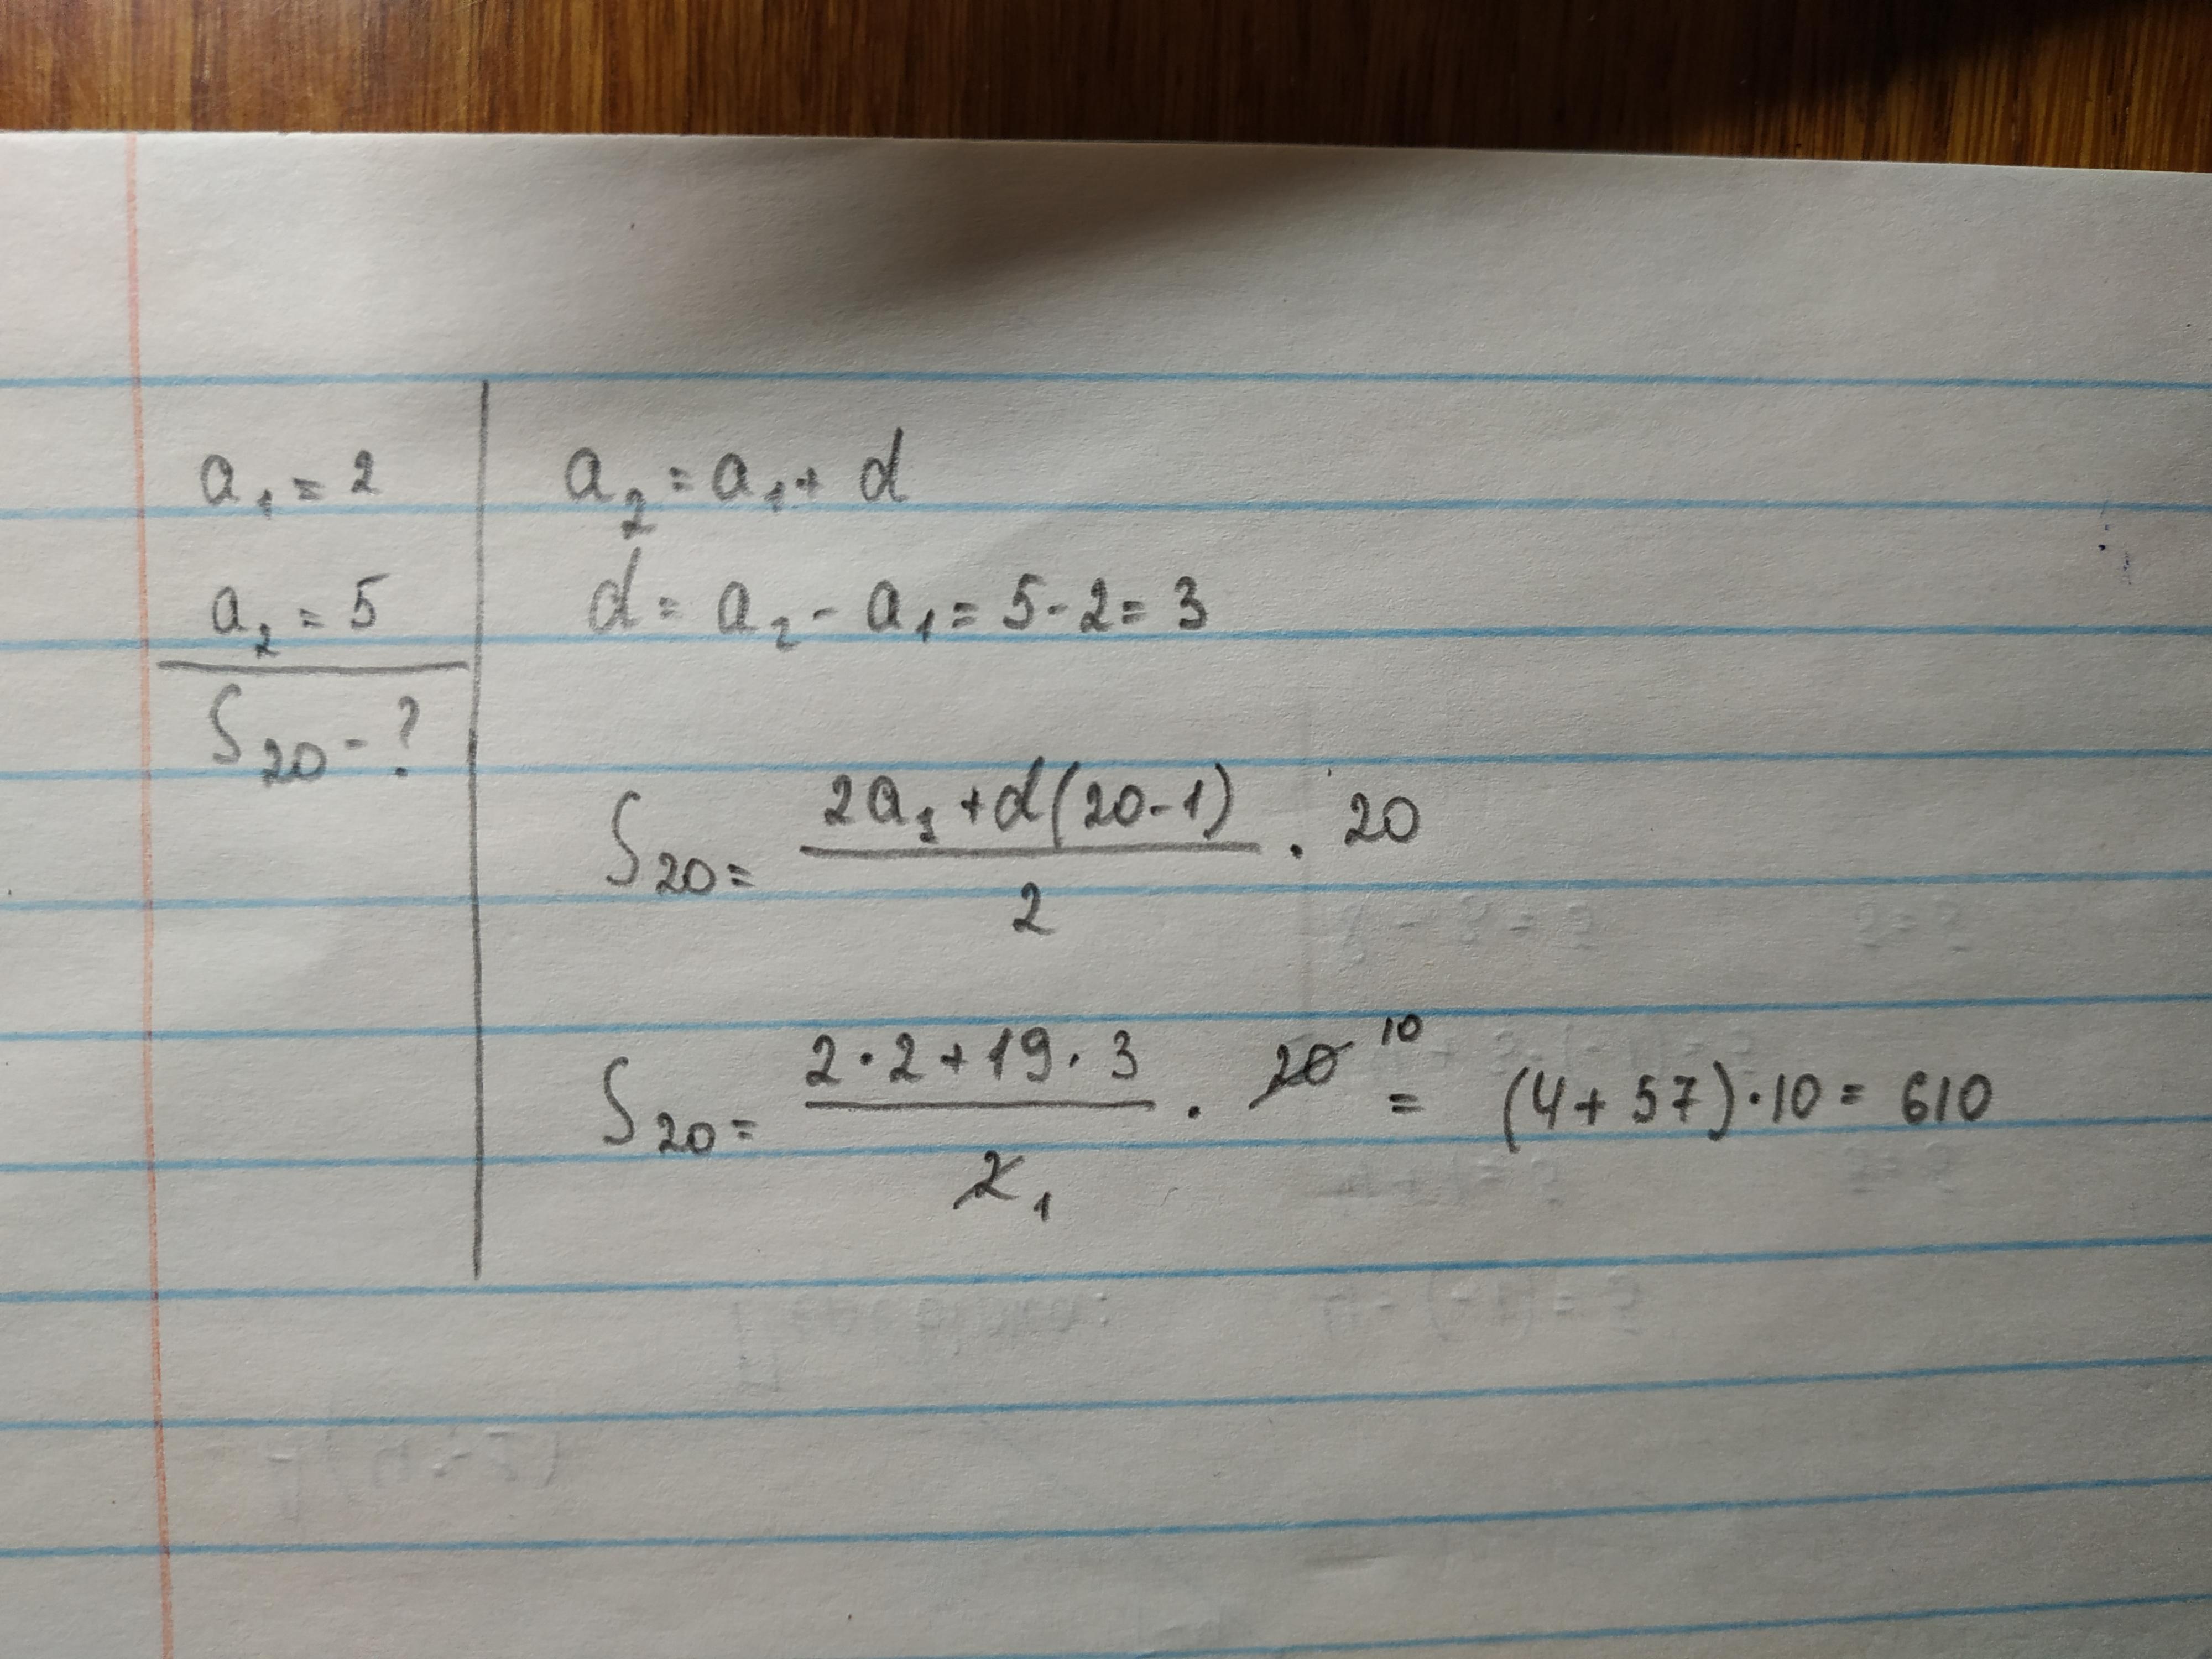 a₁ = 2
a₂ = 5
S₂₀ - ?
a₂ = a₁ + d
d = a₂ - a₁ = 5 - 2 = 3
S₂₀ = (2a₁ + d(20-1))/2 · 20
S₂₀ = (2·2 + 19·3)/2 1 · 20 10 = (4 + 57)·10 = 610